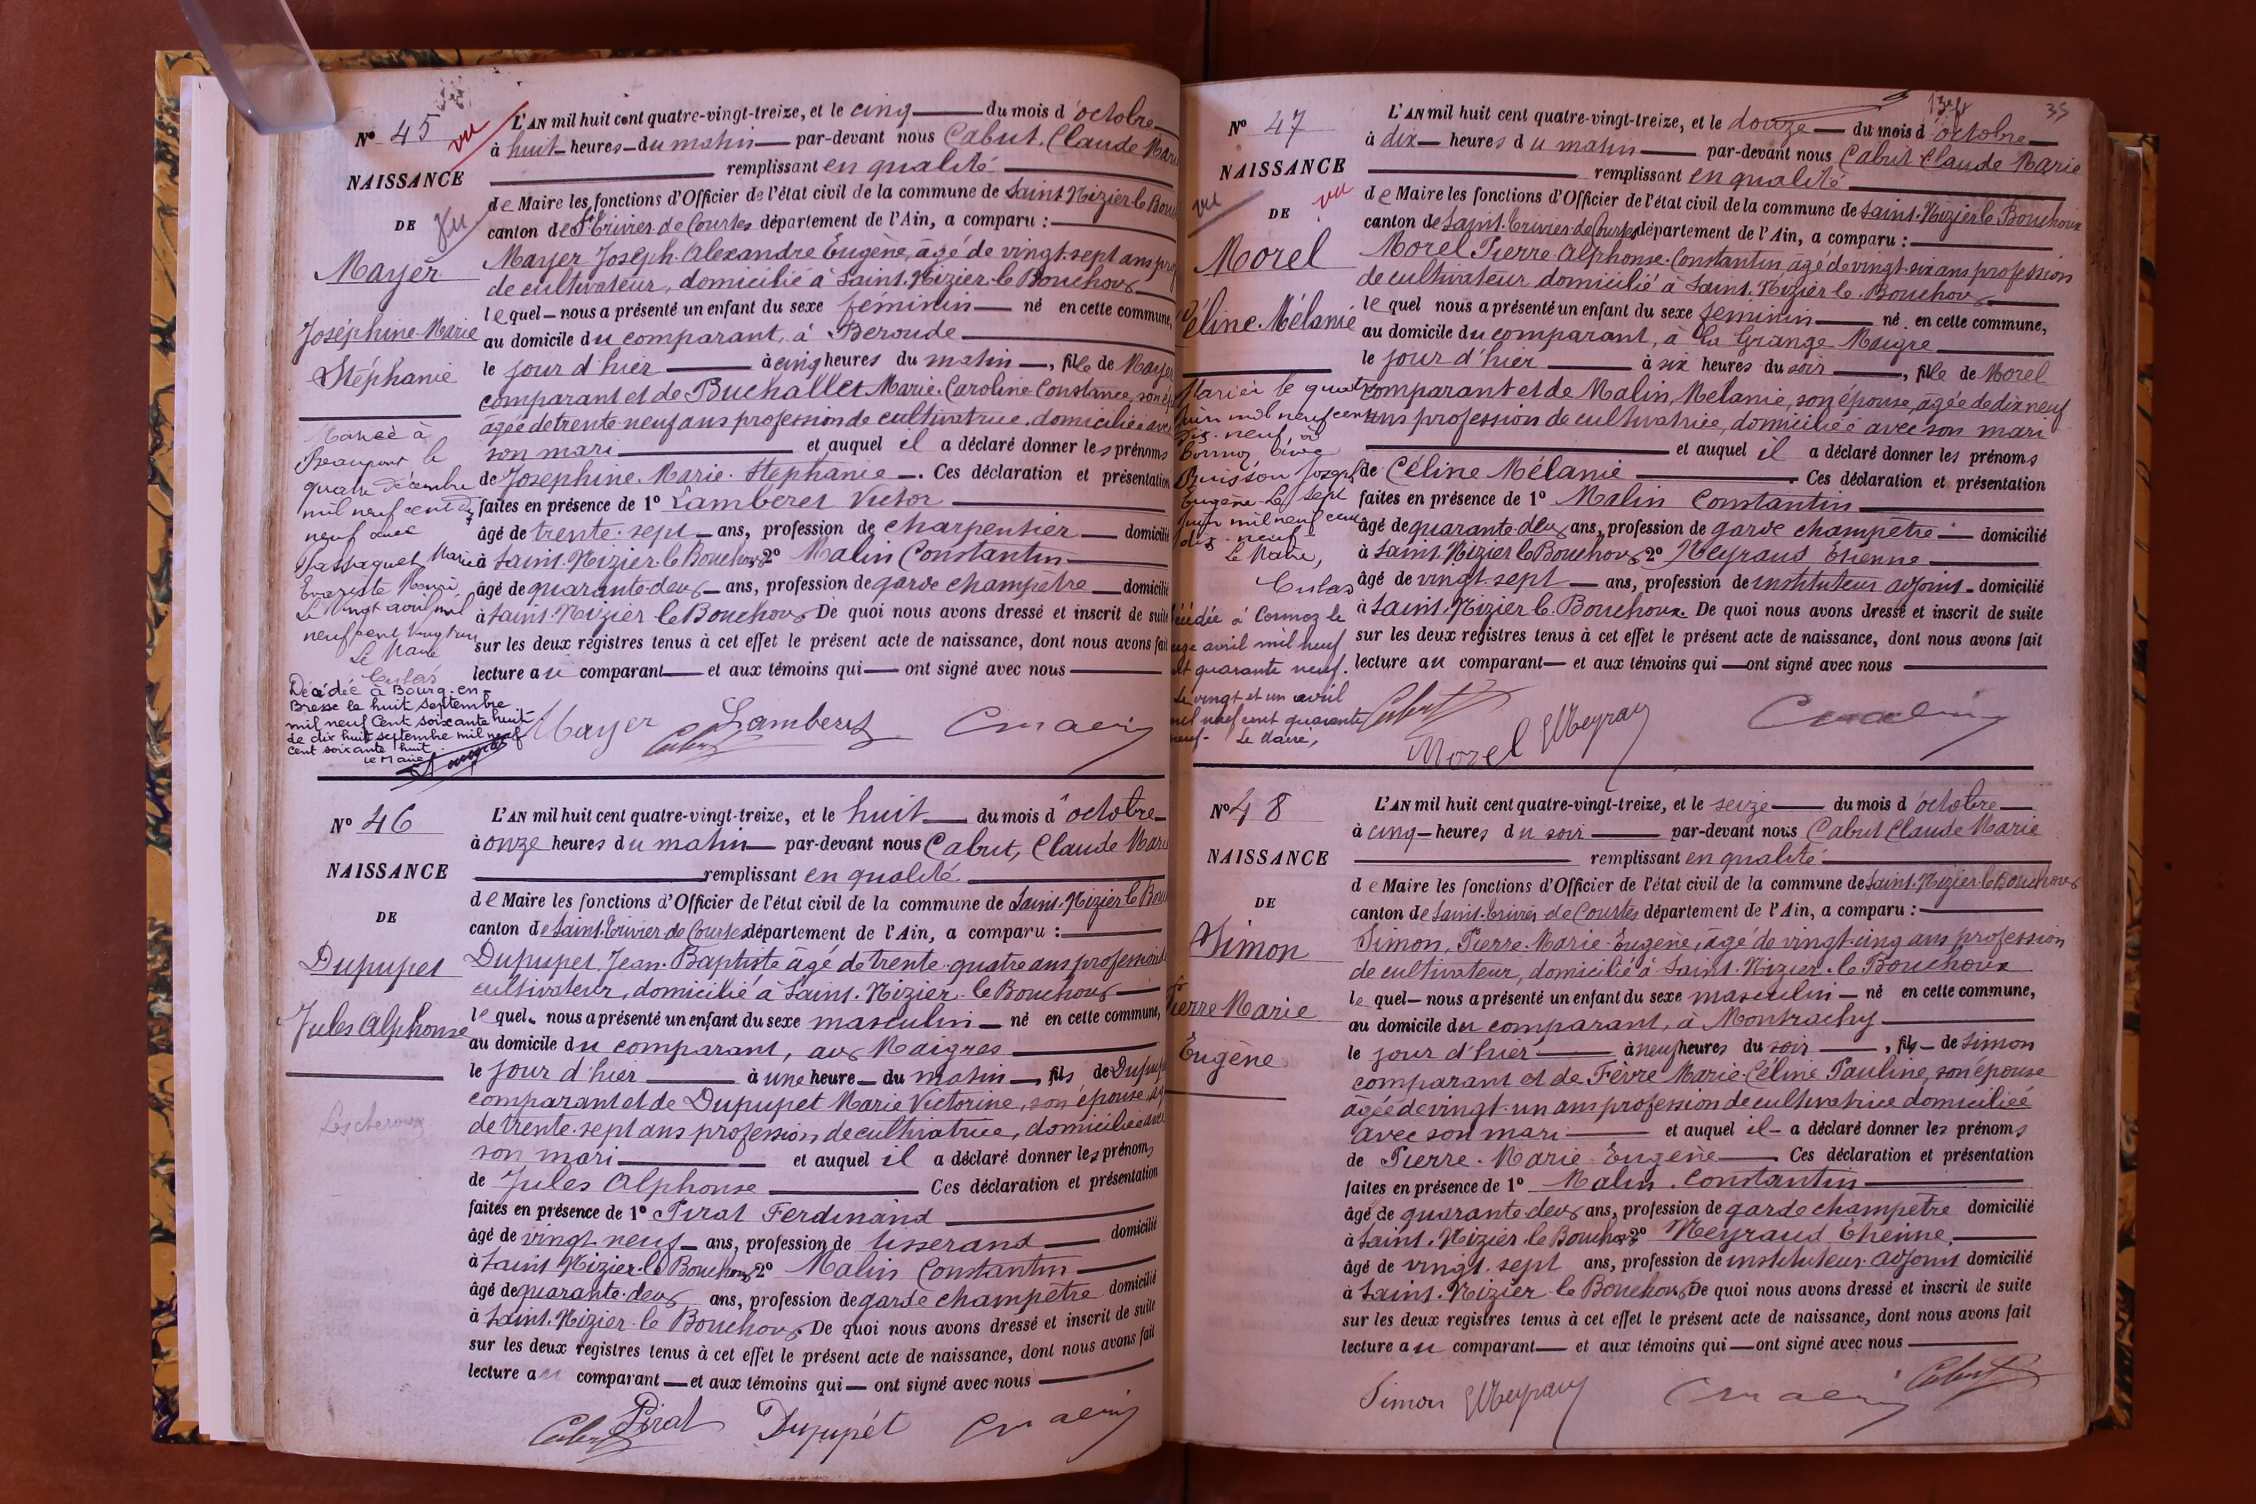 N° 45 vu
NAISSANCE
DE Vu
Mayer
Joséphine Marie
Stéphanie
Mariée à
Beaupont le
quatre décembre
mil neuf cent dix
neuf avec
Marie
Evariste Henri
Le vingt avril mil
neuf cent vingt
Le Maire
Culas
Décédée à Bourg-en-
Bresse le huit septembre
mil neuf cent soixante huit.
Le dix huit septembre mil neuf
cent soixante huit.
Le Maire
L'AN mil huit cent quatre-vingt-treize, et le cinq du mois d'octobre
à huit heures du matin par-devant nous Cabut, Claude Marie
remplissant en qualité
de Maire les fonctions d'Officier de l'état civil de la commune de Saint-Nizier-le-Bou
canton de St Trivier de Courtes département de l'Ain, a comparu :
Mayer Joseph Alexandre Eugène, âgé de vingt-sept ans pro
de cultivateur, domicilié à Saint-Nizier-le-Bouchoux
lequel nous a présenté un enfant du sexe féminin né en cette commune,
au domicile du comparant, à Beroude
le jour d'hier à cinq heures du matin, fille de Mayer
comparant et de Buchallet Marie Caroline Constance, son ép
âgée de trente-neuf ans profession de cultivatrice, domiciliée avec
son mari et auquel il a déclaré donner les prénoms
de Joséphine Marie Stéphanie. Ces déclaration et présentation
faites en présence de 1° Lamberet Victor
âgé de trente-sept ans, profession de charpentier domicilié
à Saint-Nizier-le-Bouchoux 2° Malin Constantin
âgé de quarante-deux ans, profession de garde champêtre domicilié
à Saint-Nizier-le-Bouchoux De quoi nous avons dressé et inscrit de suite
sur les deux registres tenus à cet effet le présent acte de naissance, dont nous avons fait
lecture au comparant et aux témoins qui ont signé avec nous
Mayer Cabut Lamberet Cmalin
N° 46
NAISSANCE
DE
Dupupet
Jules Alphonse
Lescheroux
L'AN mil huit cent quatre-vingt-treize, et le huit du mois d'octobre
à onze heures du matin par-devant nous Cabut, Claude Marie
remplissant en qualité
de Maire les fonctions d'Officier de l'état civil de la commune de Saint-Nizier-le-Bou
canton de Saint-Trivier de Courtes département de l'Ain, a comparu :
Dupupet Jean-Baptiste âgé de trente-quatre ans profession d
cultivateur, domicilié à Saint-Nizier-le-Bouchoux
lequel nous a présenté un enfant du sexe masculin né en cette commune,
au domicile du comparant, aux Maigres
le jour d'hier à une heure du matin, fils de Dupupet
comparant et de Dupupet Marie Victorine, son épouse, âg
de trente-sept ans profession de cultivatrice, domiciliée avec
son mari et auquel il a déclaré donner les prénoms
de Jules Alphonse Ces déclaration et présentation
faites en présence de 1° Pirat Ferdinand
âgé de vingt neuf ans, profession de tisserand domicilié
à Saint-Nizier-le-Bouchoux 2° Malin Constantin
âgé de quarante-deux ans, profession de garde champêtre domicilié
à Saint-Nizier-le-Bouchoux. De quoi nous avons dressé et inscrit de suite
sur les deux registres tenus à cet effet le présent acte de naissance, dont nous avons fait
lecture au comparant et aux témoins qui ont signé avec nous
Cabut Pirat Dupupét Cmalin
35
N° 47
NAISSANCE
vu DE vu
Morel
Céline Mélanie
Mariée le quatre
Juin mil neuf cent
dix-neuf, à
Cormoz avec
Buisson Joseph
Eugène. Le sept
Juin mil neuf cent
dix-neuf
Le Maire,
Culas
Décédée à Cormoz le
avril mil neuf
cent quarante neuf.
Le vingt et un avril
mil neuf cent quarante
neuf. Le Maire,
L'AN mil huit cent quatre-vingt-treize, et le douze du mois d'octobre
à dix heures du matin par-devant nous Cabut Claude Marie
remplissant en qualité
de Maire les fonctions d'Officier de l'état civil de la commune de Saint-Nizier-le-Bouchoux
canton de Saint-Trivier de Courtes département de l'Ain, a comparu :
Morel Pierre Alphonse Constantin âgé de vingt-six ans profession
de cultivateur domicilié à Saint-Nizier-le-Bouchoux
lequel nous a présenté un enfant du sexe féminin né en cette commune,
au domicile du comparant, à La Grange Maigre
le jour d'hier à six heures du soir, fille de Morel
comparant et de Malin, Mélanie, son épouse, âgée de dix-neuf
ans profession de cultivatrice, domiciliée avec son mari
et auquel il a déclaré donner les prénoms
de Céline Mélanie Ces déclaration et présentation
faites en présence de 1° Malin Constantin
âgé de quarante-deux ans, profession de garde champêtre domicilié
à Saint-Nizier-le-Bouchoux 2° Meyraud Etienne
âgé de vingt-sept ans, profession de instituteur adjoint domicilié
à Saint-Nizier-le-Bouchoux. De quoi nous avons dressé et inscrit de suite
sur les deux registres tenus à cet effet le présent acte de naissance, dont nous avons fait
lecture au comparant et aux témoins qui ont signé avec nous
Cabut Morel EMeyraud Cmalin
N° 48
NAISSANCE
DE
Simon
Pierre Marie
Eugène
L'AN mil huit cent quatre-vingt-treize, et le seize du mois d'octobre
à cinq heures du soir par-devant nous Cabut Claude Marie
remplissant en qualité
de Maire les fonctions d'Officier de l'état civil de la commune de Saint-Nizier-le-Bouchoux
canton de Saint-Trivier de Courtes département de l'Ain, a comparu :
Simon, Pierre-Marie-Eugène, âgé de vingt-cinq ans profession
de cultivateur, domicilié à Saint-Nizier-le-Bouchoux
lequel nous a présenté un enfant du sexe masculin né en cette commune,
au domicile du comparant, à Montrachy
le jour d'hier à neuf heures du soir, fils de Simon
comparant et de Fèvre Marie-Céline Pauline, son épouse
âgée de vingt-un ans profession de cultivatrice domiciliée
avec son mari et auquel il a déclaré donner les prénoms
de Pierre Marie Eugène Ces déclaration et présentation
faites en présence de 1° Malin Constantin
âgé de quarante-deux ans, profession de garde champêtre domicilié
à Saint-Nizier-le-Bouchoux 2° Meyraud Etienne
âgé de vingt-sept ans, profession de instituteur adjoint domicilié
à Saint-Nizier-le-Bouchoux De quoi nous avons dressé et inscrit de suite
sur les deux registres tenus à cet effet le présent acte de naissance, dont nous avons fait
lecture au comparant et aux témoins qui ont signé avec nous
Simon EMeyraud Cmalin Cabut